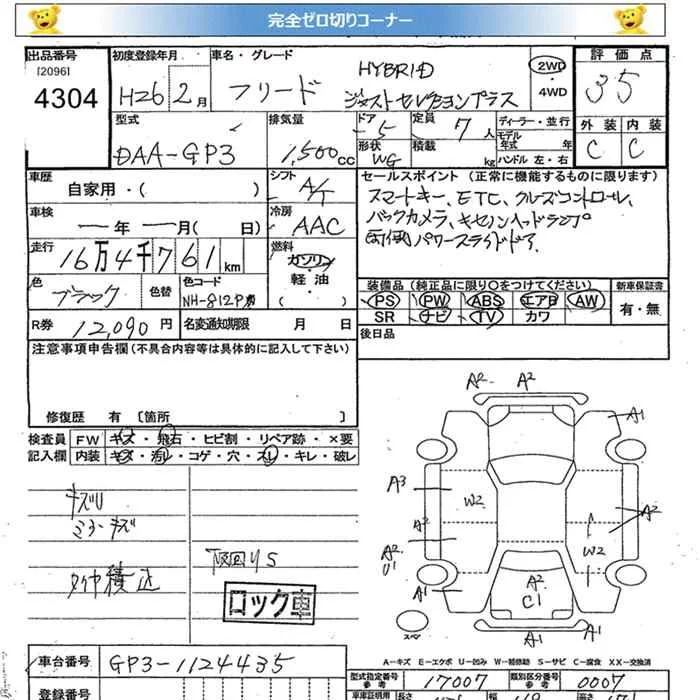 完全ゼロ切りコーナー
出品番号 初度登録年月 車名・グレード 評価点
[2096]
4304
H26 2月 フリード HYBRID
ジャストセレクションプラス
2WD
・
4WD
35
型式 排気量 ドア 定員 ディーラー・並行
外装 内装
DAA-GP3 1,500cc 5 7人
モデル年式 年
形状 WG 積載 kg ハンドル 左・右
C C
車歴 自家用・( )
シフト A/T
セールスポイント(正常に機能するものに限ります)
スマートキー、ETC、クルーズコントロール、
バックカメラ、キセノンヘッドランプ
両側パワースライドドア
車検 ー年ー月( 日)
冷房 AAC
走行 16万4千761km
燃料 ガソリン
・
軽油
・
( )
色 ブラック 色替 色コード
NH-812P
装備品(純正品に限り○をつけてください) 新車保証書
PS PW ABS エアB AW
SR ナビ TV カワ
有・無
R券 12,090円 名変通知期限 月 日
後日品
注意事項申告欄(不具合内容等は具体的に記入して下さい)
修復歴 有 [箇所 ]
検査員 FW キズ・飛石・ヒビ割・リペア跡・×要
記入欄 内装 キズ・汚レ・コゲ・穴・スレ・キレ・破レ
キズU
ミラーキズ
タイヤ積込
下回りS
ロック車
A2 A2
A1
A3
W2
A2
A2
A2
U1
W2
A1
A2
C1
A1
A1
スペア
A-キズ E-エクボ U-凹み W-補修跡 S-サビ C-腐食 XX-交換済
車台番号 GP3-1124435
型式指定番号 参考 17007 類別区分番号 参考 0007
登録番号
車庫証明用 長さ 幅